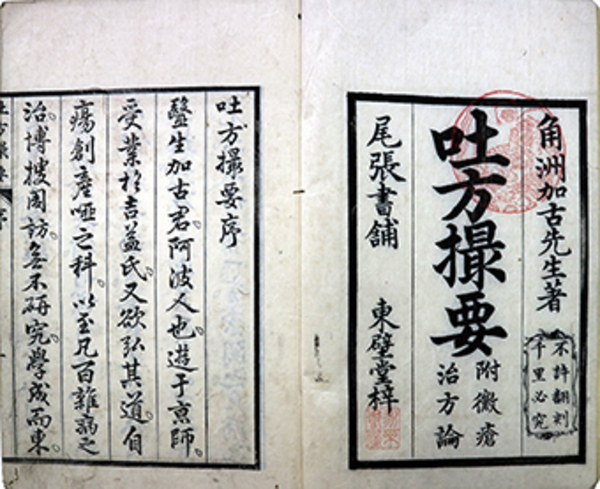 角洲加古先生著
不許翻刻
千里必究
吐方撮要
附黴瘡
治方論
尾張書舗
東壁堂梓
吐方撮要序
醫生加古君阿波人也遊于京師
受業於吉益氏又欲弘其道自
瘍創產啞之科以至凡百雜病之
治博搜周訪無不研究學成而東